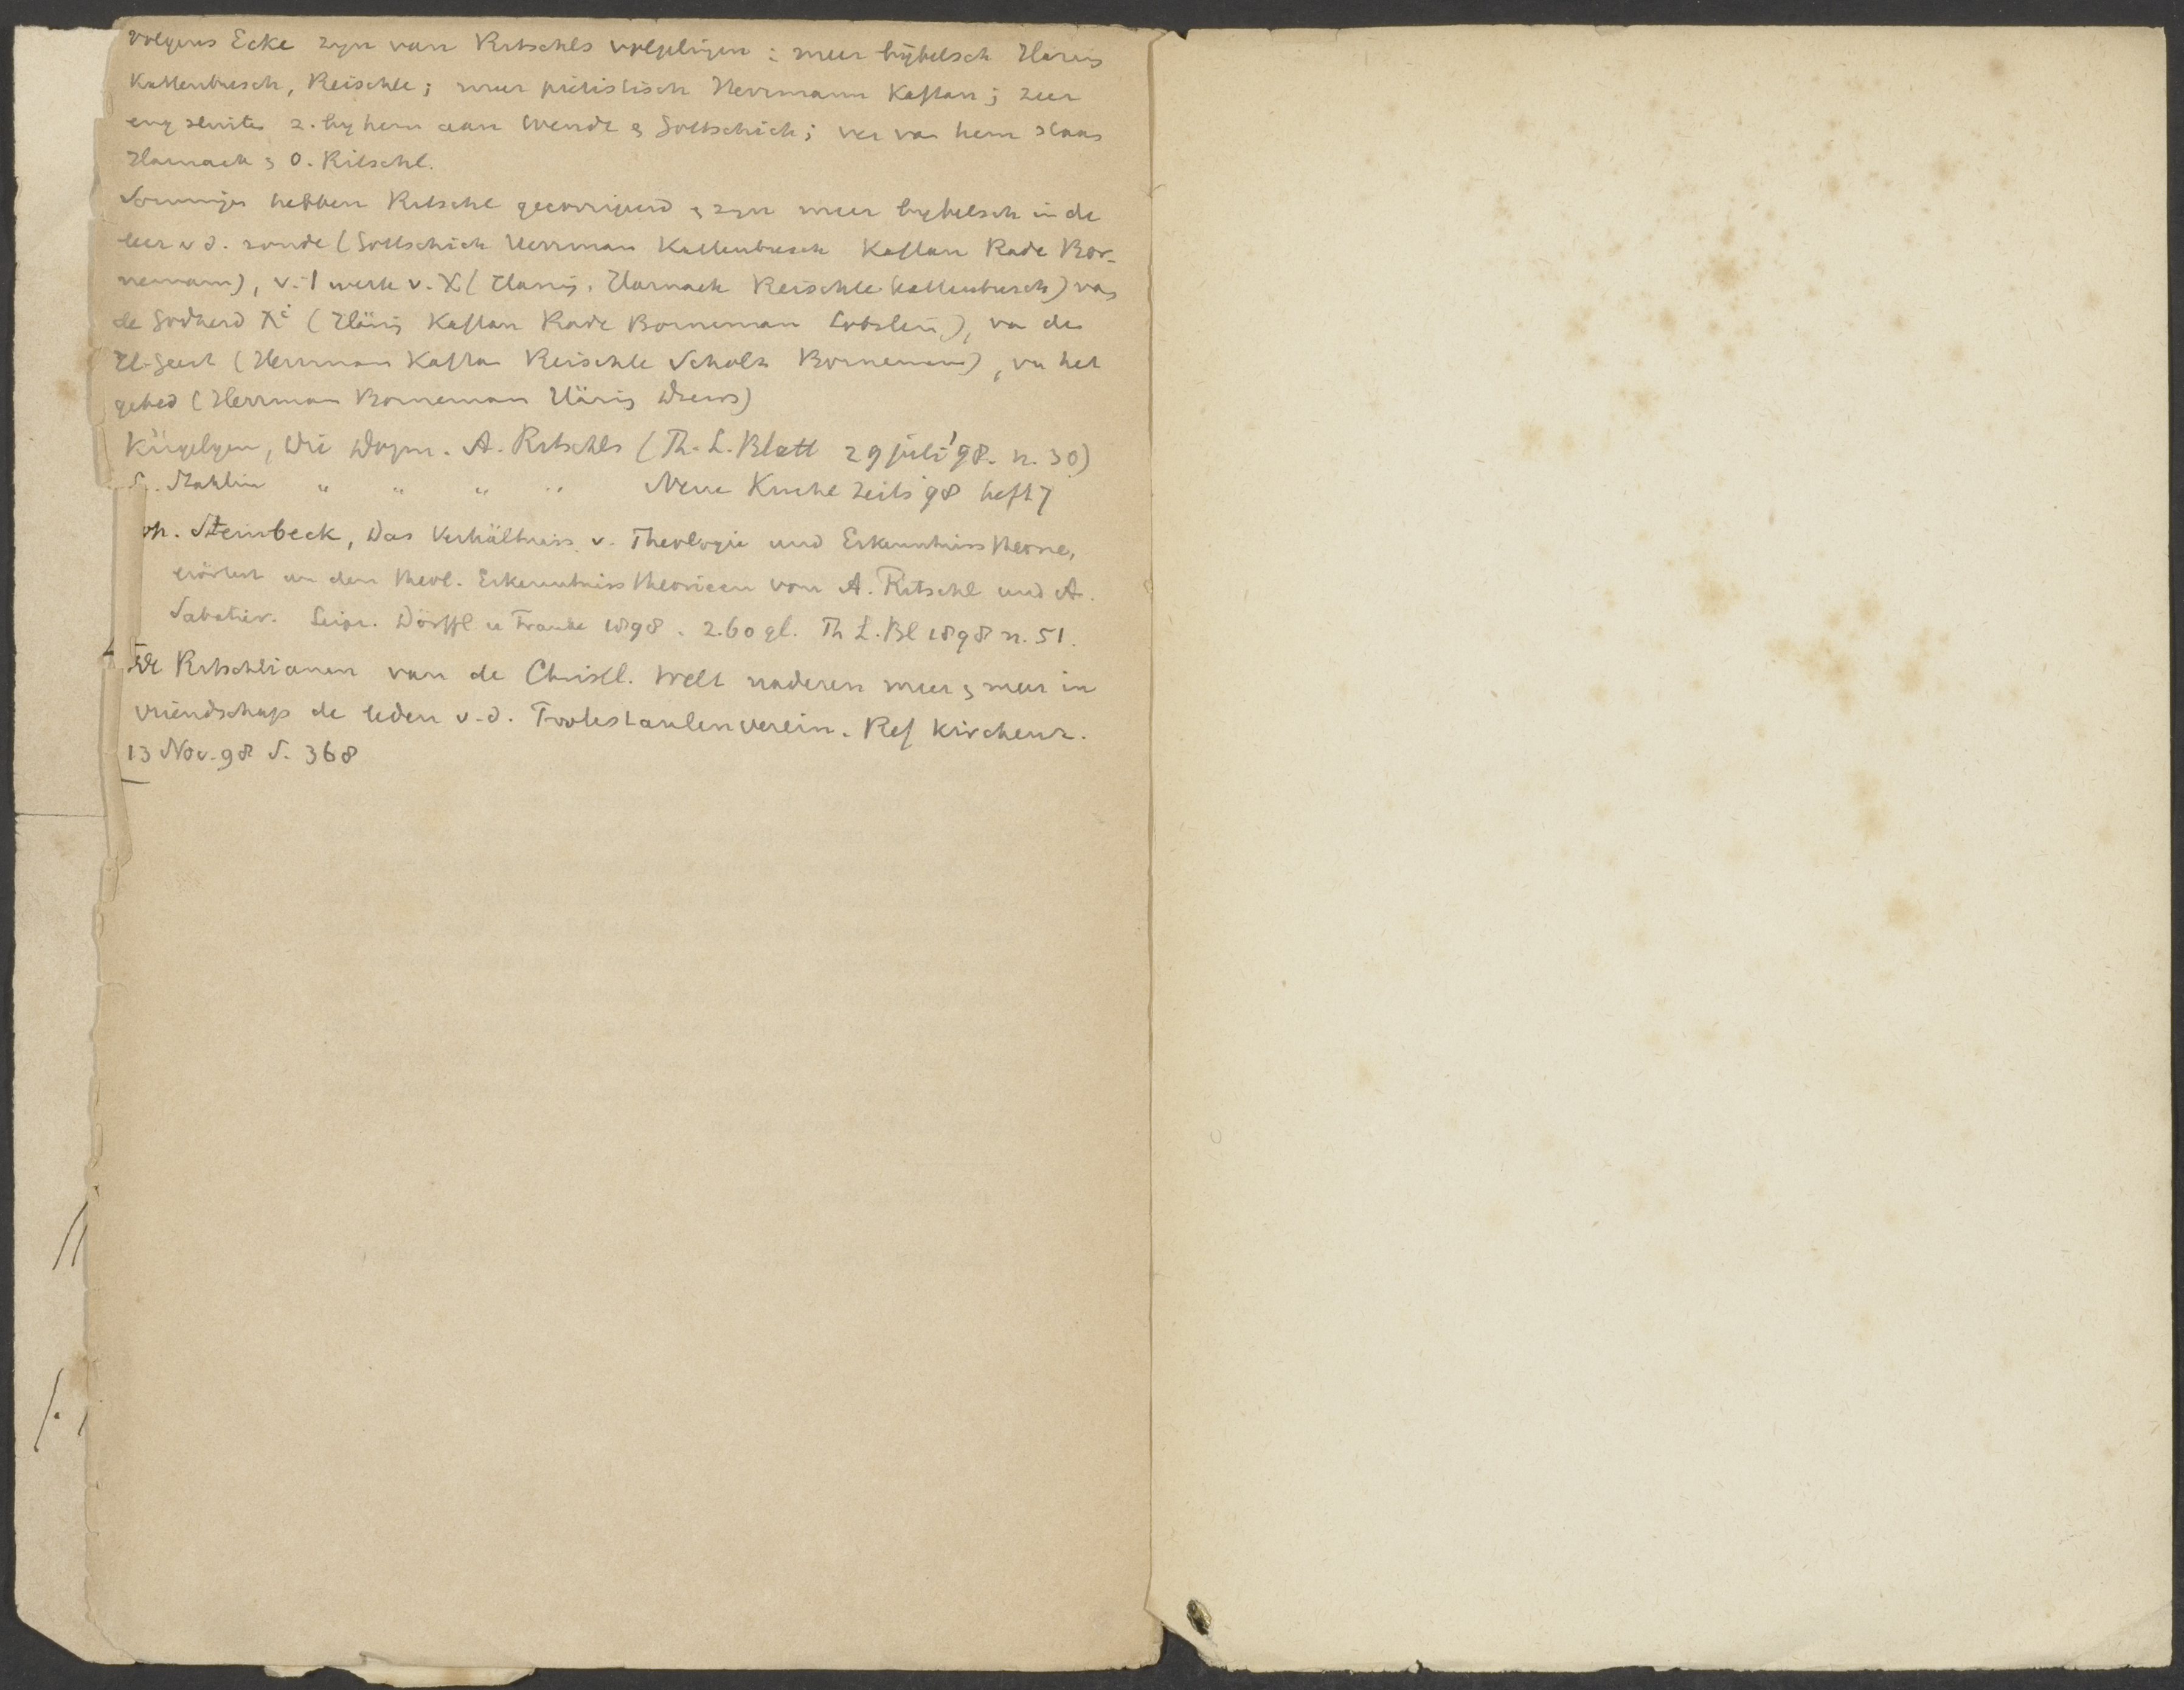 volgens Ecke zijn van Ritschls volgelingen: meer bijbelsch Häring
Kattenbusch, Reischle; meer piëtistisch Herrmann Kaftan; zeer
eng sluiten z. bij hem aan Wendt & Gottschick; ver van hem staan
Harnack & O. Ritschl.
Sommigen hebben Ritschl gecorrigeerd & zijn meer bijbelsch in de
leer v d. zonde (Gottschick Herrman Kattenbusch Kaftan Rade Bor-
nemann), v. 't werk v. X (Häring, Harnack Reischle Kattenbusch) van
de Godheid Xi (Häring Kaftan Rade Borneman Lobstein), van den
H. Geest (Herrman Kaftan Reischle Scholz Bornemann), van het
gebed (Herrman Borneman Häring Drews)
Kügelgen, Die Dogm. A. Ritschls (Th. L. Blatt 29 juli '98. n. 30)
Stählin " " " " Neue Kirchl Zeits 98 heft 7
Joh. Steinbeck, Das Verhältniss v. Theologie und Erkenntnisstheorie,
erörtert an den theol. Erkenntnisstheorieen von A. Ritschl und A.
Sabatier. Leipz. Dörffl. u Franke 1898. 2.60 gl. Th L. Bl 1898 n. 51.
De Ritschlianen van de Christl. Welt naderen meer & meer in
vriendschap de leden v. d. Protestantenverein. Ref Kirchenz.
13 Nov. 98 S. 368